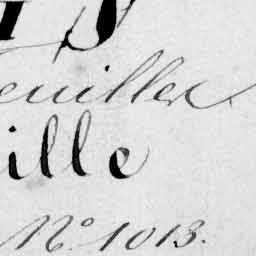 euiller
ille
Nº 1013.